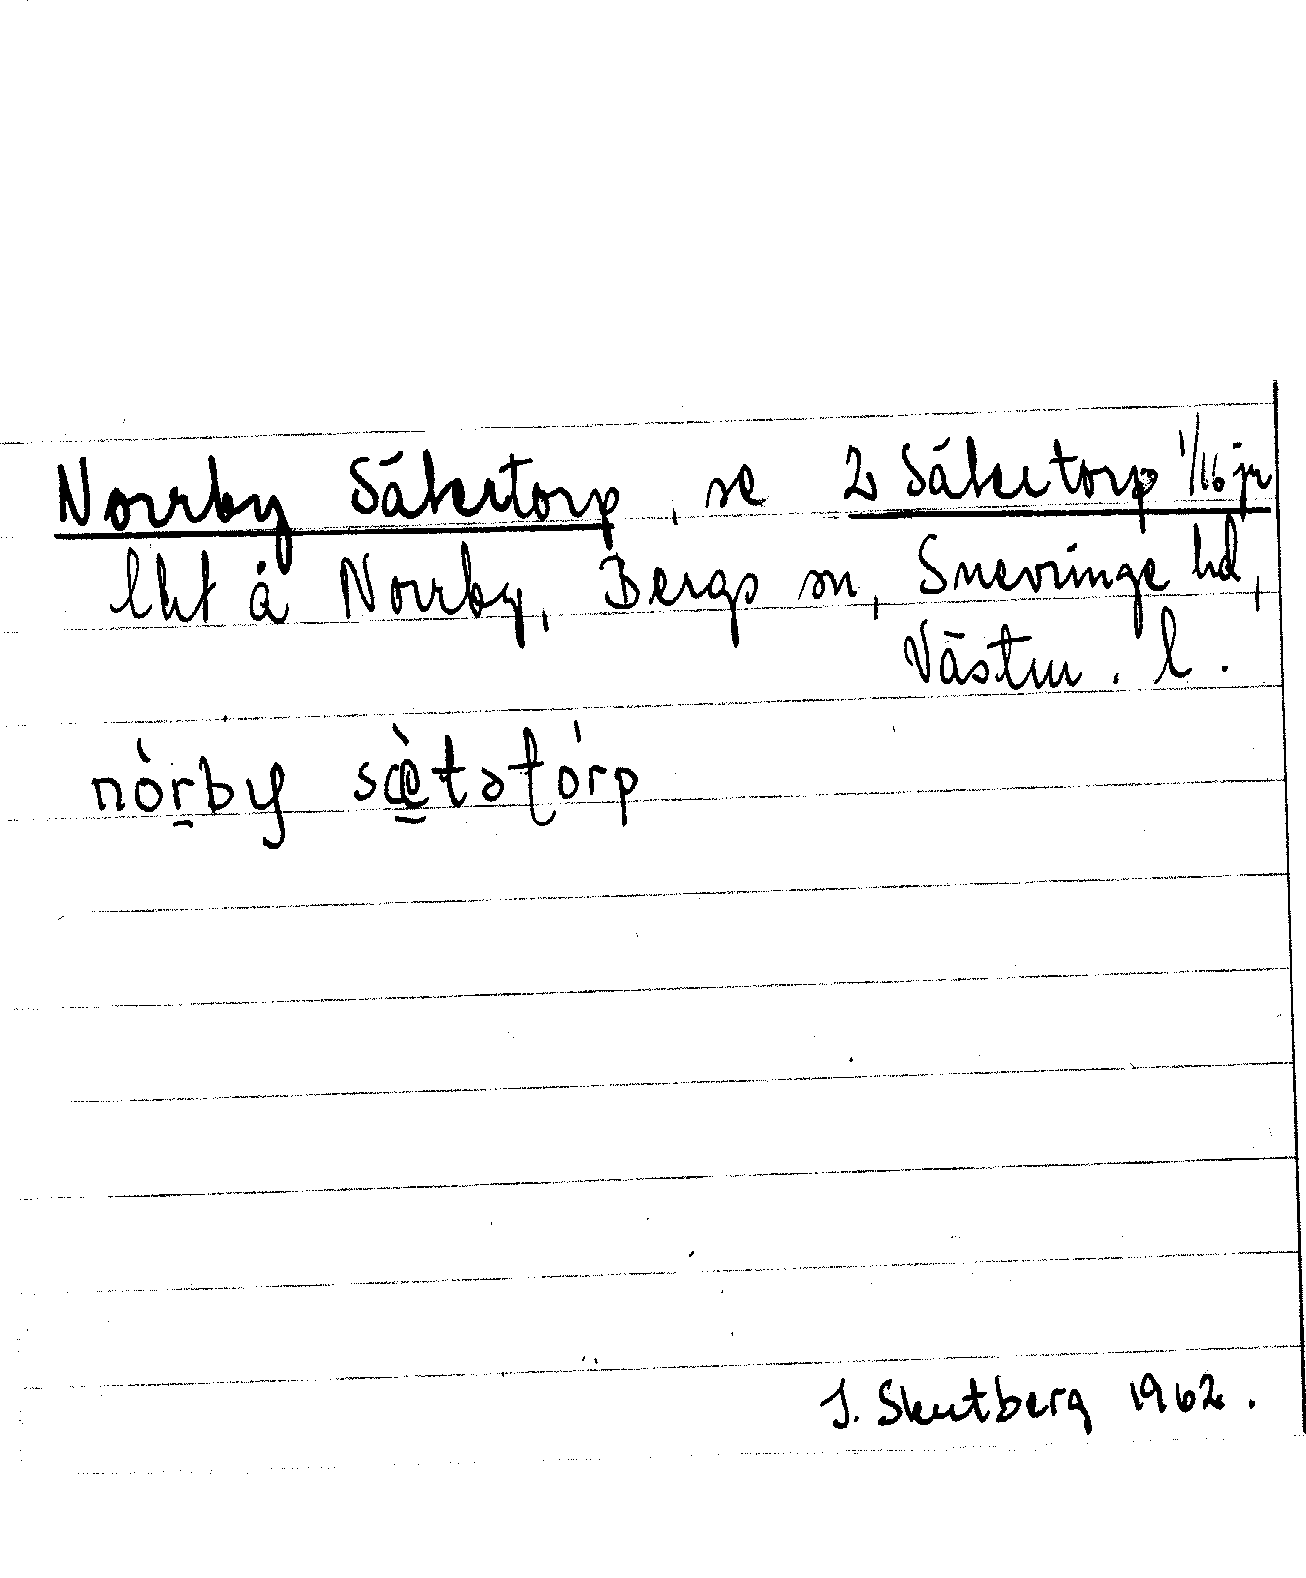 Norrby Säketorp, se 2 Säketorp 1/16 jn
lht å Norrby, Bergs sn, Snevringe hd,
Västm. l.
nòrby sæ̀tətórp
J. Skutberg 1962.